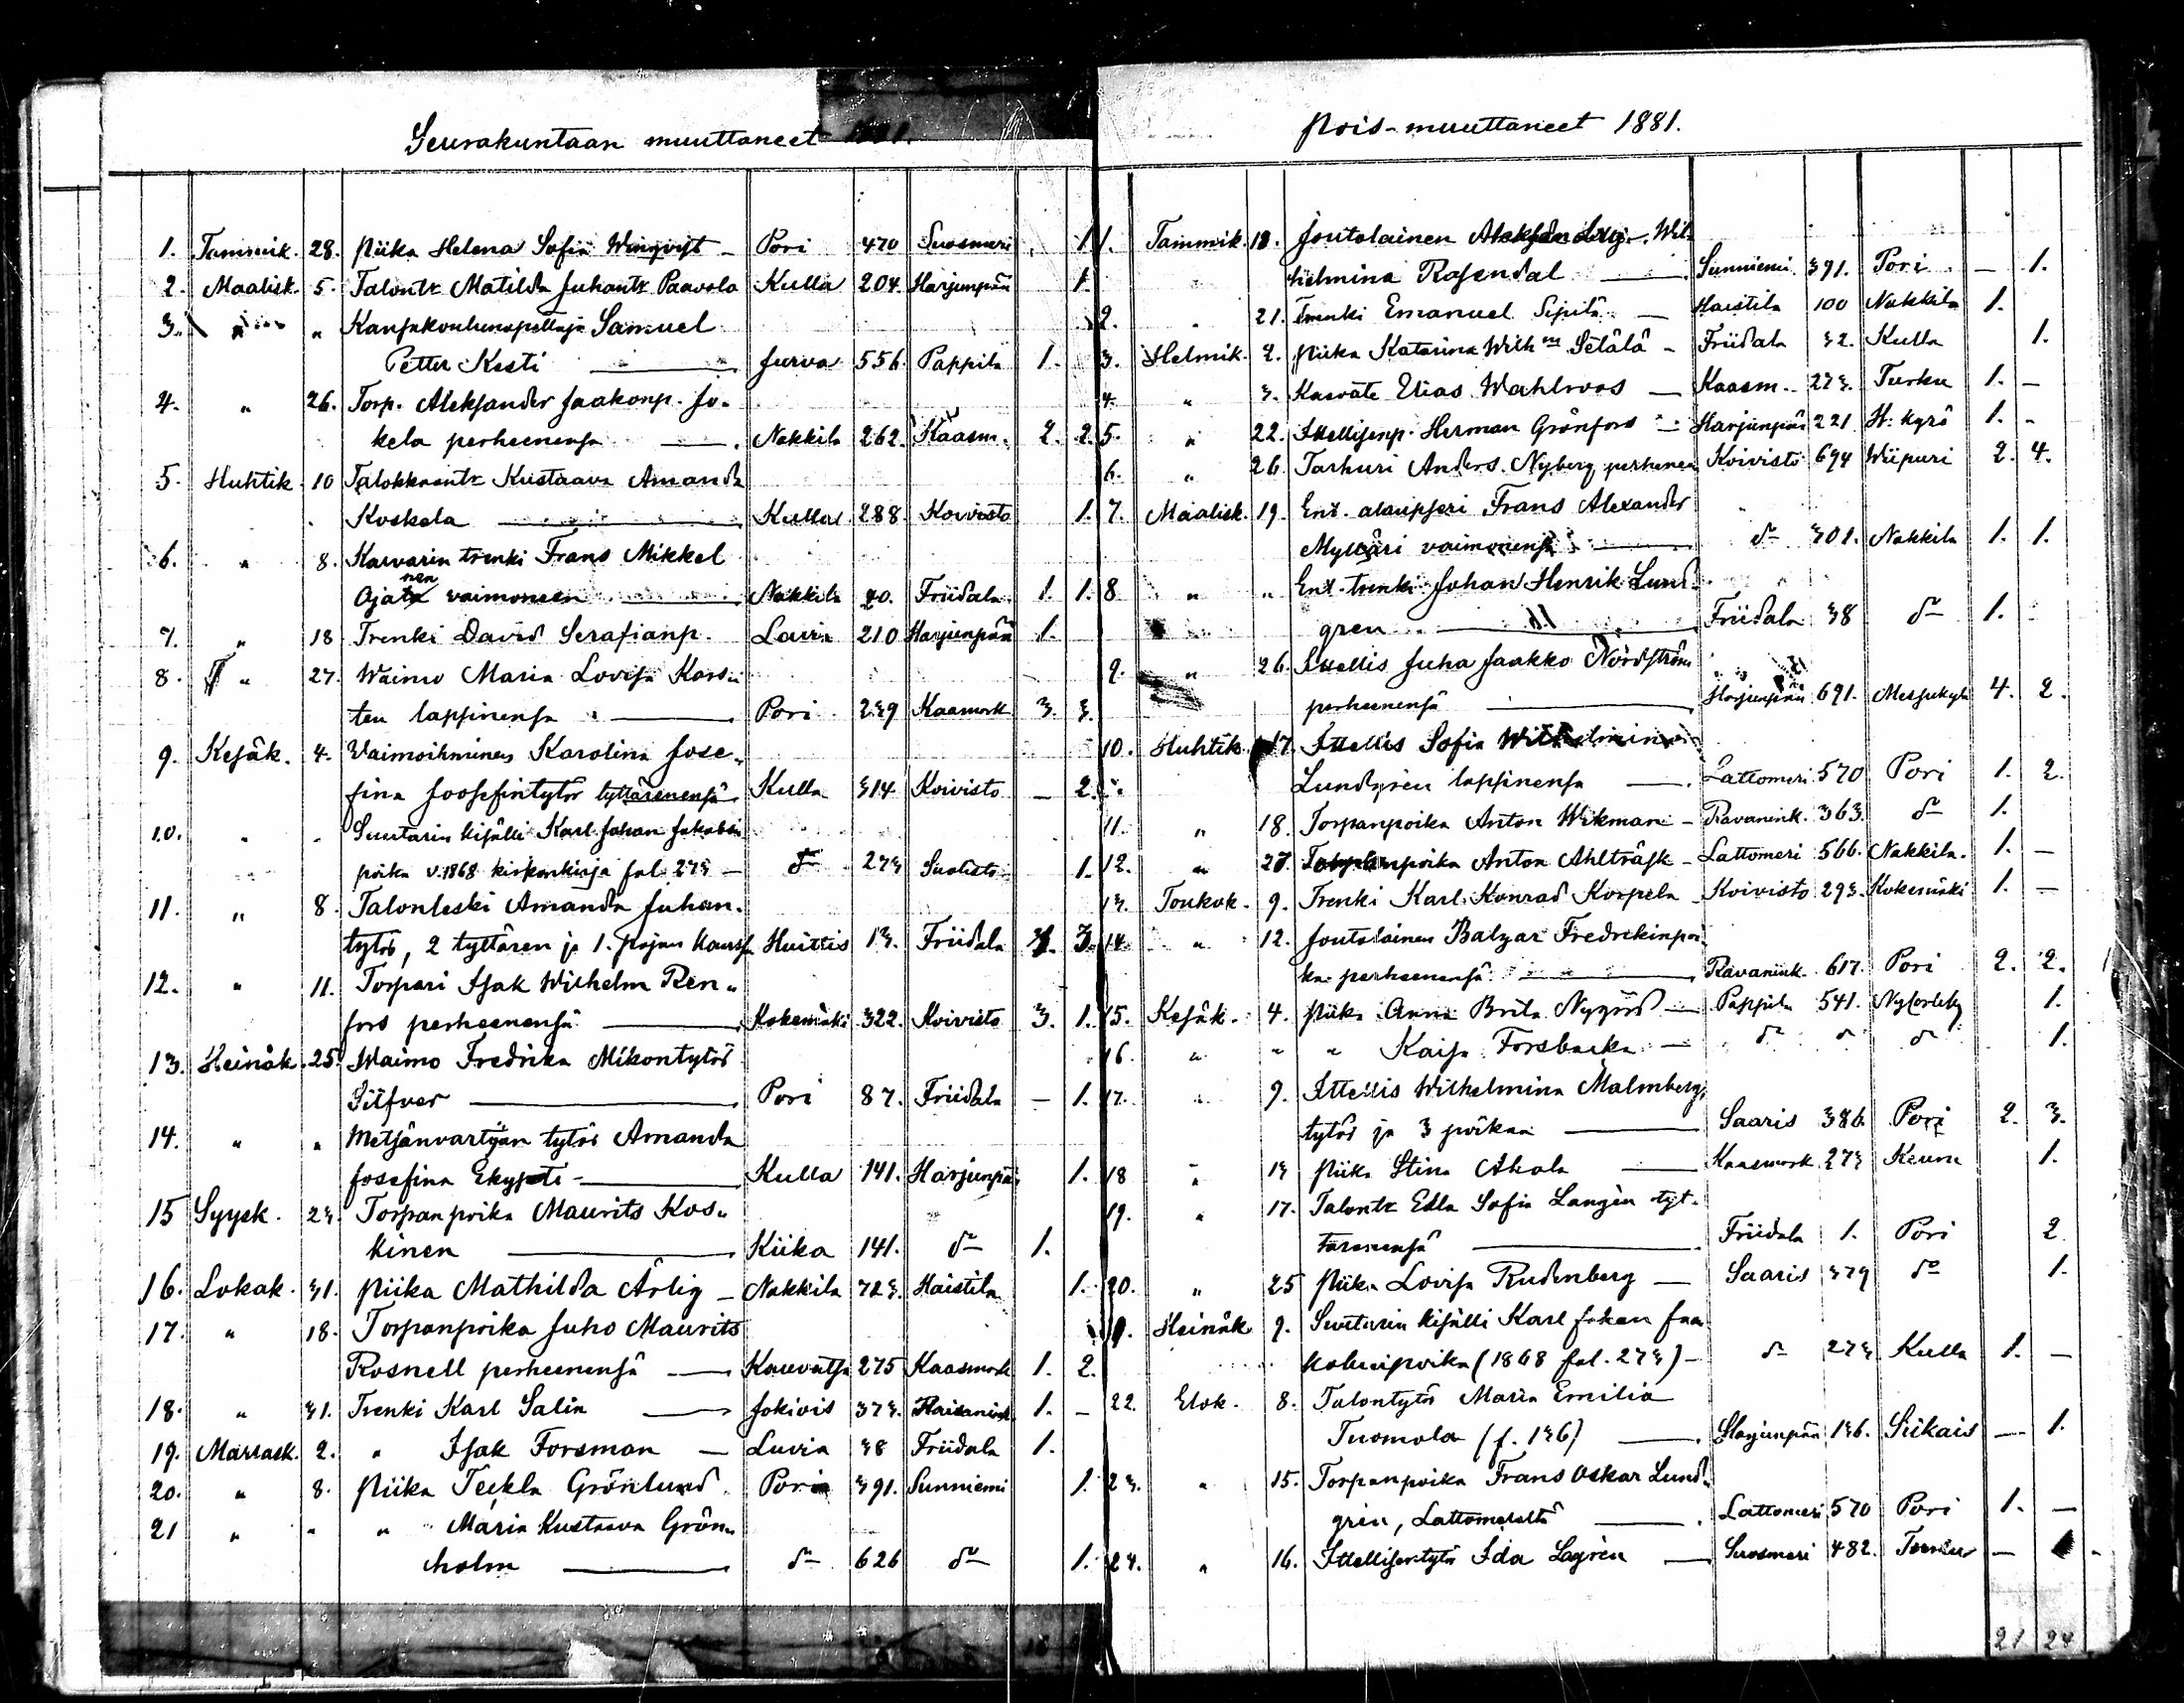 Seurakuntaan muuttaneet 1881.
1. Tammik. 28. Piika Helena Sofia Winqvist - Pori 470 Suosmeri 1.
2. Maalisk. 5. Talontr Matilda Juhantr Paavola Kulla 204. Harjunpää 1.
3. " " Kansakoulunopettaja Samuel
Petter Kesti Jurva 556. Pappila 1.
4. " 26. Torp. Aleksander Jaakonp. Jo-
kela perheenensä Nakkila 262. Kaasm. 2. 2.
5. Huhtik. 10 Talokkaantr Kustaava Amanda
Koskela Kulla 288. Koivisto 1.
6. " 8. Karvarin trenki Frans Mikkel
Ojanen vaimoneen Nakkila 20. Friidala 1. 1.
7. " 18 Trenki David Serafianp. Lavia 210 Harjunpää 1.
8. " 27. Waimo Maria Lovisa Kars-
ten lapsinensa Pori 239 Kaasmark 3. 3.
9. Kesäk. 4. Vaimoihminen Karolina Jose-
fina Joosefintytör tyttärenensä Kulla 314 Koivisto - 2.
10. " " Suutarin kisälli Karl Johan Jakobin
poika v. 1868 kirkonkirja fol. 273 - do 273 Suolisto 1.
11. " 8. Talonleski Amanda Juhan-
tytös, 2 tyttären ja 1. pojan kanssa Huittis 13. Friidala 1. 3.
12. " 11. Torpari Isak Wilhelm Ren-
fors perheenensä Kokemäki 322. Koivisto 3. 1.
13. Heinäk. 25. Waimo Fredrika Mikontytös
Silfver Pori 87. Friidala - 1.
14. " " Metsänvartijan tytös Amanda
Josefina Ekqpete - Kulla 141. Harjunpää 1.
15 Syysk. 23. Torpanpoika Maurits Kos-
kinen Kiika 141. do 1.
16. Lokak. 31. Piika Mathilda Ärlig - Nakkila 723. Haistila 1.
17. " 18. Torpanpoika Juho Maurits
Rosnell perheenensä Kauvatsa 275 Kaasmark 1. 2.
18. " 31. Trenki Karl Salin Jokivis 373. 1. -
19. Marrask. 2. " Isak Forsman - Luvia 38 Friidala 1.
20. " 8. Piika Teckla Grönlund Pori 391. Sunniemi 1.
21 " " " Maria Kustaava Grön-
holm do 626 do 1.
Pois-muuttaneet 1881.
1. Tammik. 18. Joutolainen Wil-
helmina Rosendal Sunniemi 391. Pori - 1.
2. " 21. Trenki Emanuel Sipilä - Haistila 100 Nakkila 1.
3. Helmik. 2. Piika Katarina Wilhna Setälä - Friidala 32. Kulla 1.
4. " 3. Kasväte Elias Wahlroos - Kaasm. 273. Turku 1. -
5. " 22. Itellisenp. Herman Grönfors - Harjunpää 221 H: kyrö 1. -
6. " 26. Tarhuri Anders Nyberg perhenen Koivisto 694 Wiipuri 2. 4.
7. Maalisk. 19. Ent. alaupseri Frans Alexander
Mylläri vaimonensa do 301. Nakkila 1. 1.
8 " " Ent. trenki Johan Henrik Lund-
gren Friidala 38 do 1.
9. " 26. Itellis Juha Jaakko Nordström
perheenensä Harjunpää 691. Messukylä 4. 2.
10. Huhtik. 17. Itellis Sofia Wilhelmina
Lundgrén lapsinensa Lattomeri 570 Pori 1. 2.
11. " 18. Torpanpoika Anton Wikman - Ravanink. 363. do 1.
12. " 27. Torpanpoika Anton Ahlträsk - Lattomeri 566. Nakkila. 1. -
13. Toukok. 9. Trenki Karl Konrad Korpela Koivisto 293. Kokemäki 1. -
14. " 12. Joutolainen Balzar Fredrikinpoi-
ka perheenensä Ravanink. 617. Pori 2. 2.
15. Kesäk. 4. Piika Anna Brita Nygård - Pappila 541. Nycarleby 1.
16. " " " Kaisa Forsbacka - do do do 1.
17. " 9. Itellis Wilhelmina Malmberg,
tytös ja 3 poikaa Saaris 386 Pori 2. 3.
18 " 13 Piika Stina Ahola Kaasmark 273 Keuru 1.
19. " 17. Talontr Edla Sofia Langén tyt-
tärenensä Friidala 1. Pori 2
20. " 25 Piika Lovisa Rudenberg - Saaris 379 do 1.
21. Heinäk. 9. Suutarin kisälli Karl Johan Jaa-
kobinpoika (1868 fol. 273) - do 273 Kulla 1. -
22. Elok. 8. Talontytös Maria Emilia
Tuomola (f. 136) Harjunpää 136. Siikais - 1.
23. " 15. Torpanpoika Frans Oskar Lund-
grén, Lattomereltä Lattomeri 570 Pori 1. -
24. " 16. Itellisentytös Ida Lagrén - Suosmeri 482. -
21 24